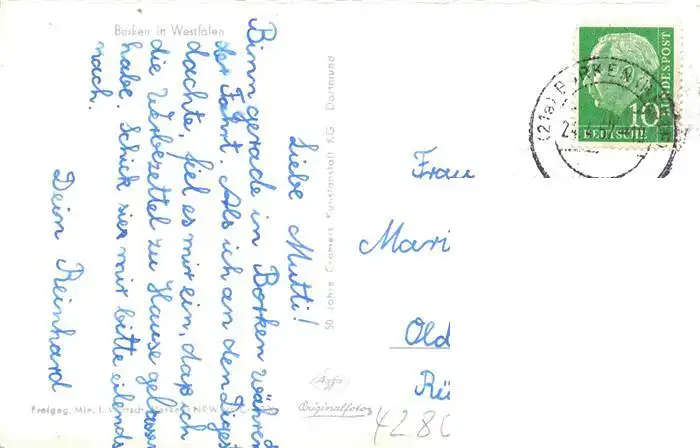 Borken in Westfalen
Liebe Mutti!
Binn gerade in Borken währen
der Fahrt. Als ich an den Diges
dachte, fiel es mir ein, daß ich
die Werbezettel zu Hause gelassen
habe. Schick sier mir bitte eilends
nach.
Dein Reinhard
50 Jahre Cramers Kunstanstalt KG. Dortmund
Freigeg. Min. f. Wirtsch.
NRW
Agfa
Originalfoto
DEUTSCHE
BUNDESPOST
10
(21a) BORKEN
24
Frau
Mari
Old
Rü
428